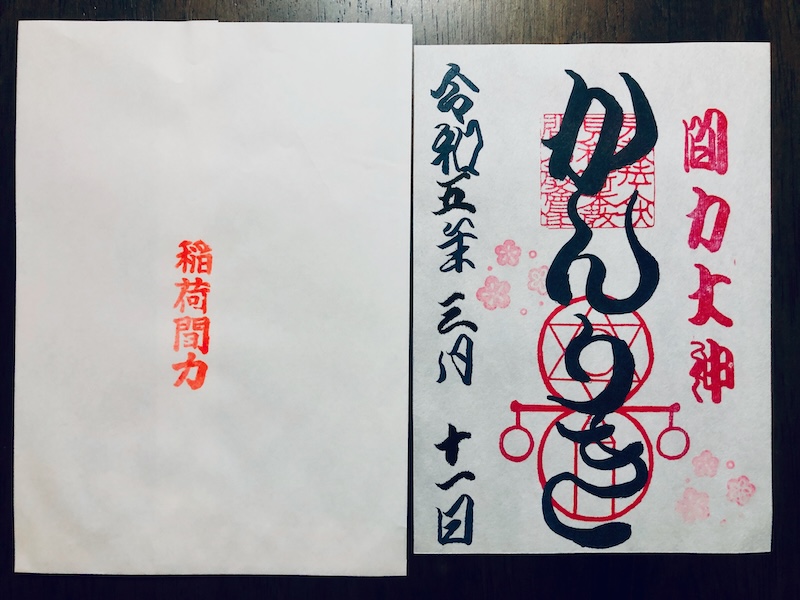 間力大神
かんりき
令和五年三月十一日
稲荷間力